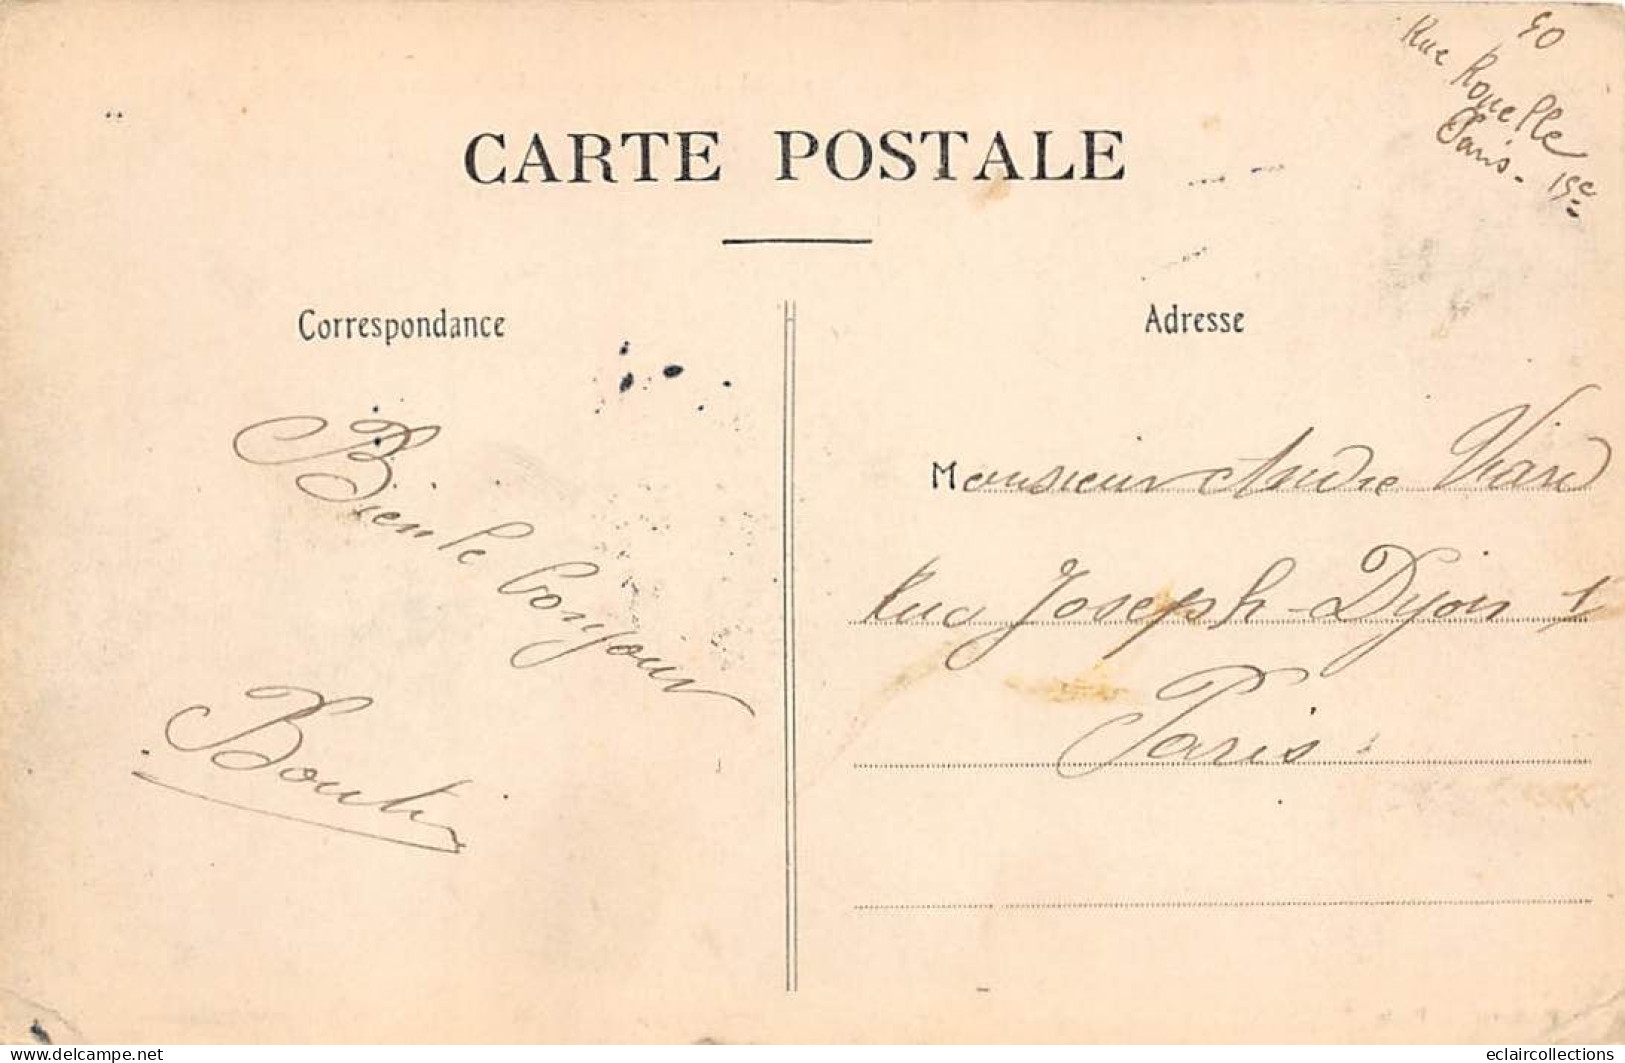 50
Rue Rouelle
Paris - 15e
CARTE POSTALE
Correspondance
Adresse
Bien le bonjour
Monsieur Andre Viard
Rue Joseph-Dijon 1
Paris
www.delcampe.net
eclaircollections